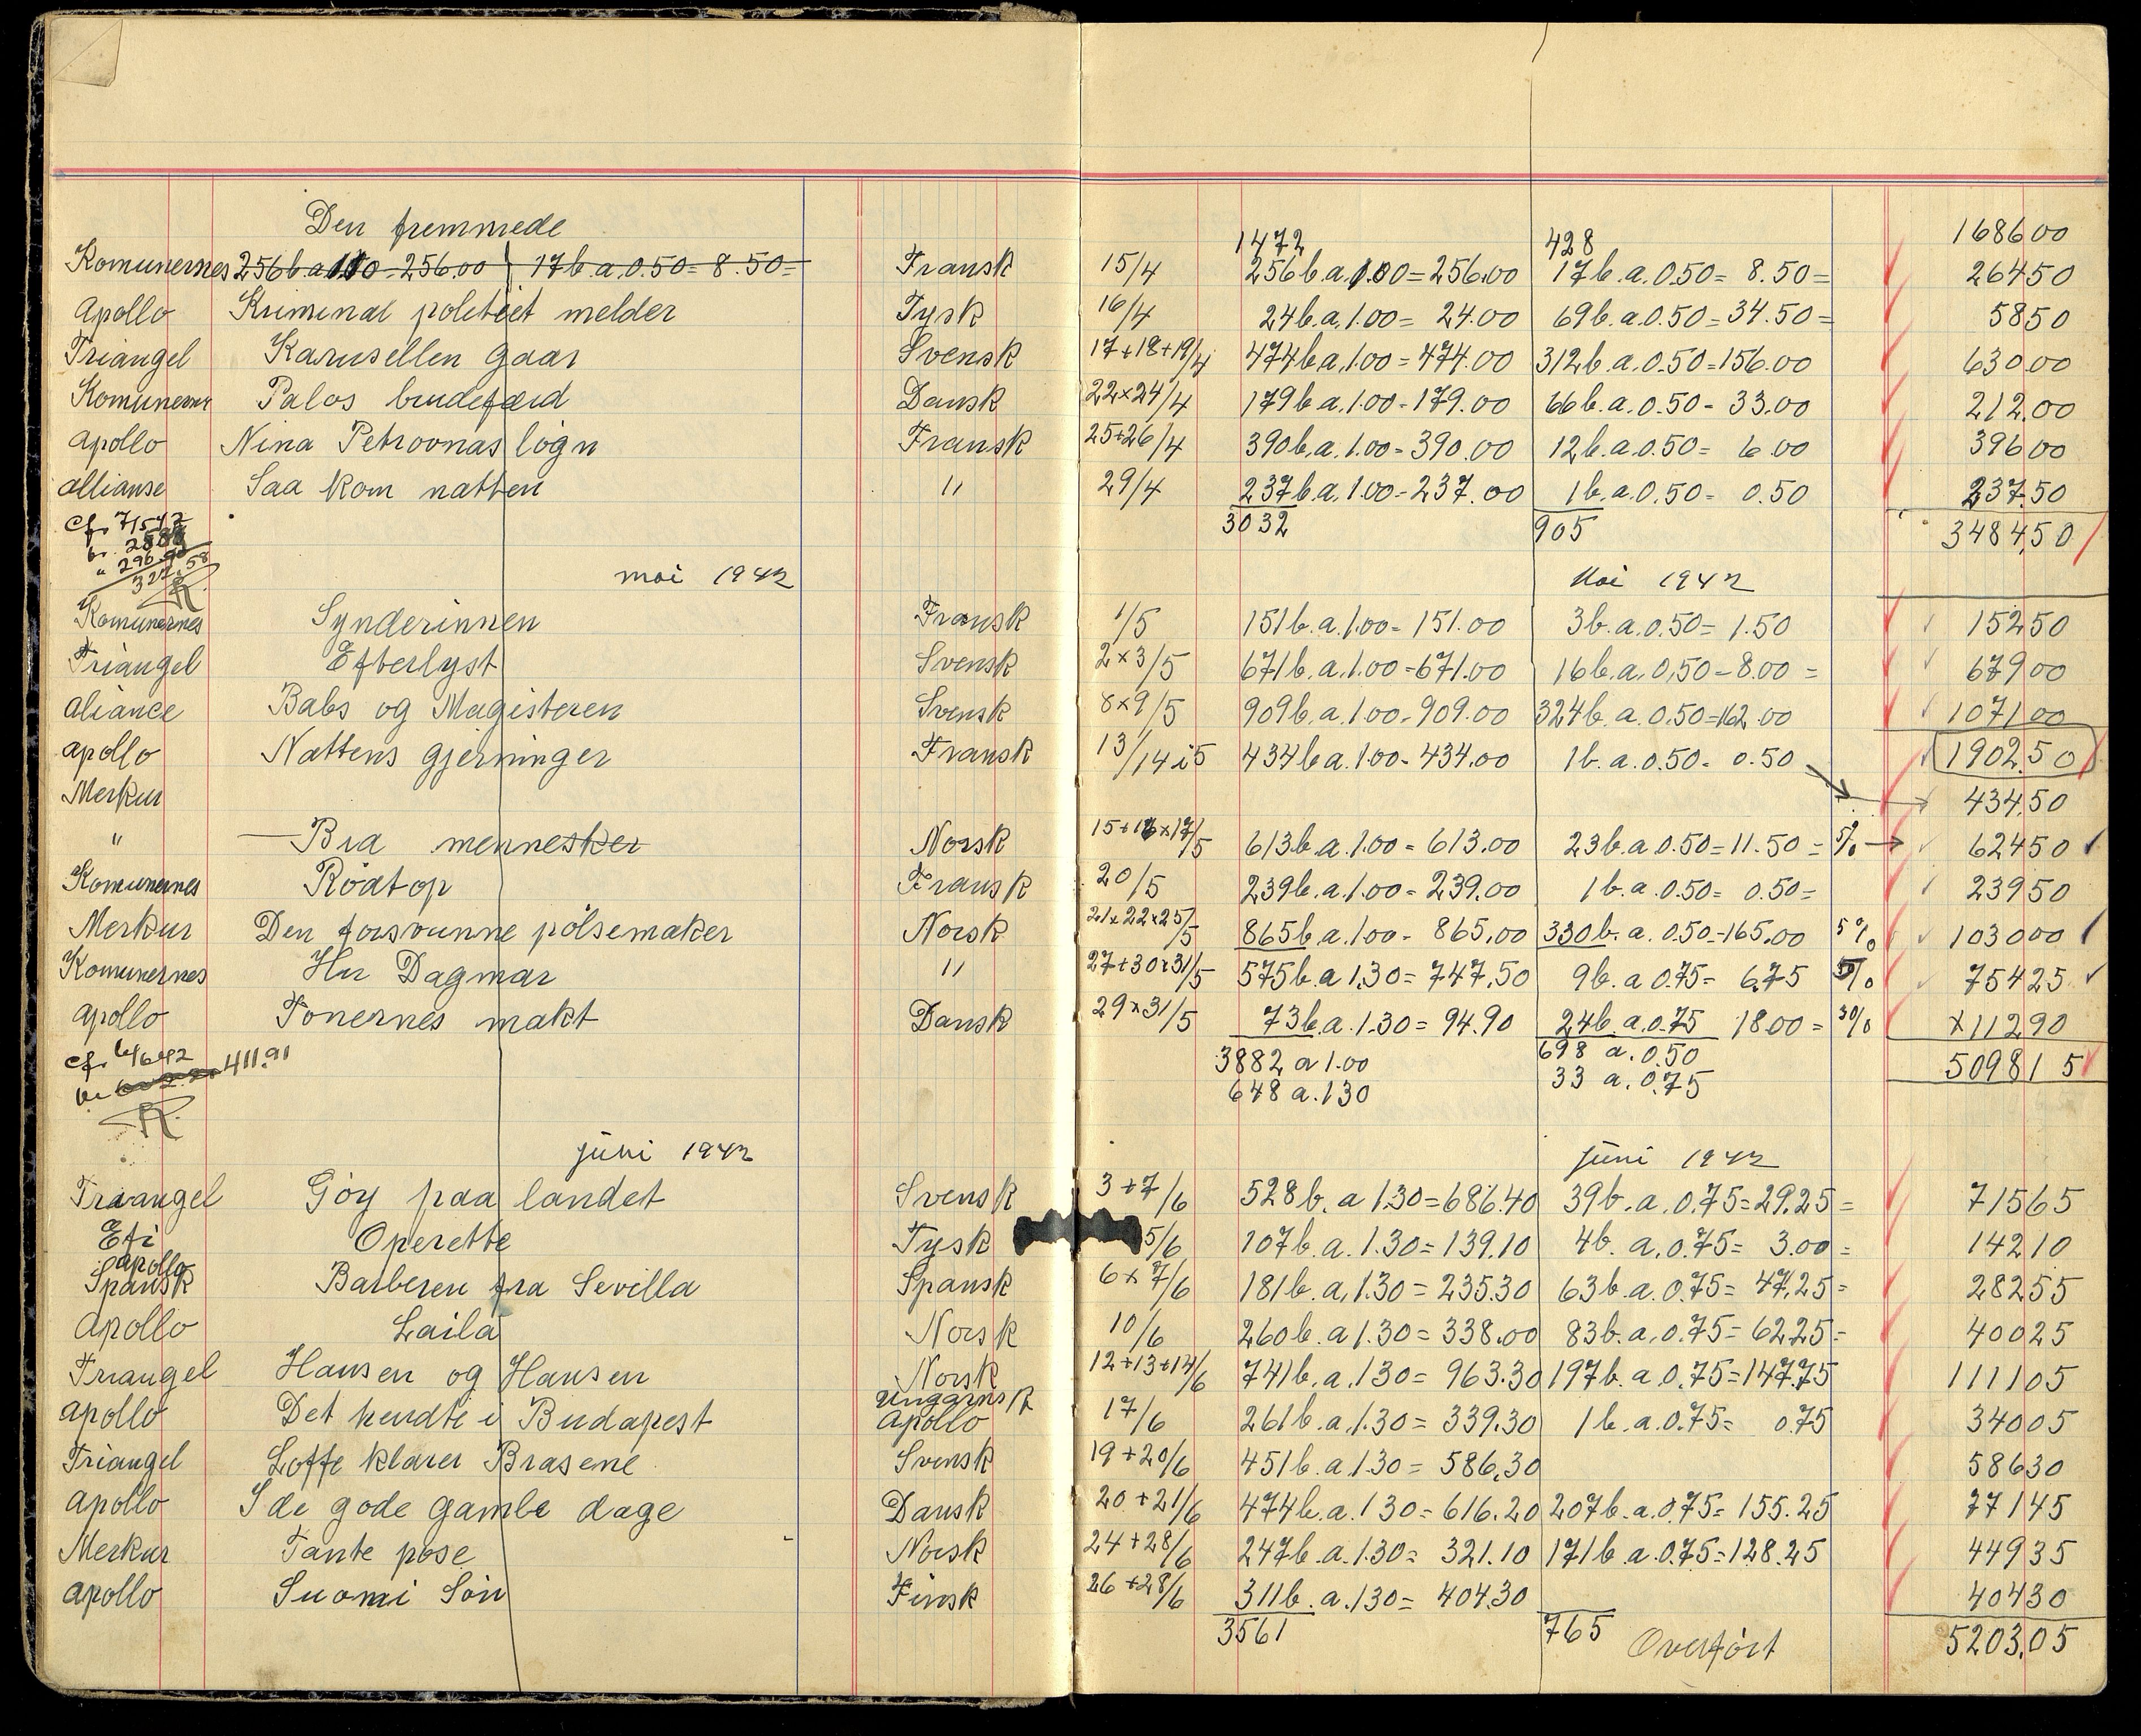 Den fremmede 1472 428 168600
Komunernes 256 b a 1.00 = 256.00 17 b. a. 0.50 = 8.50 = Fransk 15/4 256 b. a. 1.00 = 256.00 17 b. a. 0.50 = 8.50 = 26450
Apollo Kriminal politiet melder Tysk 16/4 24 b. a. 1.00 = 24.00 69 b. a. 0.50 = 34.50 = 5850
Triangel Karusellen gaar Svensk 17+18+19/4 474 b a. 1.00 = 474.00 312 b. a. 0.50 = 156.00 630.00
Komunerne Palos brudefærd Dansk 22x24/4 179 b a. 1.00 - 179.00 66 b. a. 0.50 - 33.00 212.00
apollo Nina Petrovnas løgn Fransk 25+26/4 390 b. a. 1.00 = 390.00 12 b. a. 0.50 = 6.00 39600
allianse Saa kom natten " 29/4 237 b a. 1.00 - 237.00 1 b. a. 0.50 = 0.50 23750
3032 905 3484,50
mai 1942 Mai 1942
Komunernes Synderinnen Fransk 1/5 151 b. a. 1.00 - 151.00 3 b. a. 0.50 = 1.50 15250
Triangel Efterlyst Svensk 2x3/5 671 b. a. 1.00 = 671.00 16 b. a. 0,50 - 8.00 = 67900
aliance Babs og Magisteren Svensk 8x9/5 909 b. a. 1.00 - 909.00 324 b. a. 0.50 = 162.00 107100
1902.50
apollo Nattens gjerninger Fransk 13/14 i 5 434 b a. 1.00 - 434.00 1 b. a. 0.50 - 0.50 434.50
Merkur
" Bra mennesker Norsk 15+16x17/5 613 b. a. 1.00 = 613.00 23 b. a 0.50 = 11.50 = 5% 62450
Komunernes Rødtop Fransk 20/5 239 b. a. 1.00 - 239.00 1 b. a 0.50 = 0.50 = 23950
Merkur Den forsvunne pølsemaker Norsk 21x22x25/5 865 b. a 1.00 - 865.00 330 b. a. 0.50 = 165.00 5% 103000
Komunernes Hu Dagmar " 27+30x31/5 575 b. a 1.30 = 747.50 9 b. a 0.75 = 6.75 % 75425
apollo Tonernes makt Dansk 29x31/5 73 b. a. 1.30 = 94.90 24 b. a. 0.75 18.00 = 30% x11290
3882 a 1.00 698 a. 0.50 50981 5
648 a. 1.30 33 a. 0.75
juni 1942 juni 1942
Triangel Gøy paa landet Svensk 3+7/6 528 b. a 1.30 = 686.40 39 b. a. 0.75 = 29.25 = 71565
Efi Operette Tysk 5/6 107 b. a. 1.30 = 139.10 4 b. a. 0.75 = 3.00 = 14210
apollo
Spansk Barberen fra Sevilla Spansk 6x7/6 181 b. a. 1.30 = 235.30 63 b. a. 0.75 = 47.25 = 28255
Apollo Laila Norsk 10/6 260 b. a 1.30 = 338.00 83 b. a. 0.75 = 62.25 = 40025
Triangel Hansen og Hansen Norsk 12+13+14/6 741 b. a. 1.30 = 963.30 197 b. a. 0.75 = 147.75 111105
Ungarnsk
apollo Det hendte i Budapest Apollo 17/6 261 b. a. 1.30 = 339.30 1 b. a. 0.75 = 0.75 34005
Triangel Loffe klarer Brasene Svensk 19+20/6 451 b. a 1.30 = 586.30 58630
apollo I de gode gamle dage Dansk 20+21/6 474 b. a. 1.30 = 616.20 207 b. a. 0.75 = 155.25 77145
Merkur Tante pose Norsk 24+28/6 247 b. a. 1.30 = 321.10 171 b. a 0.75 = 128.25 44935
apollo Suomi Søn Finsk 26+28/6 311 b. a. 1.30 = 404.30 40430
3561 765 Overført 5203.05